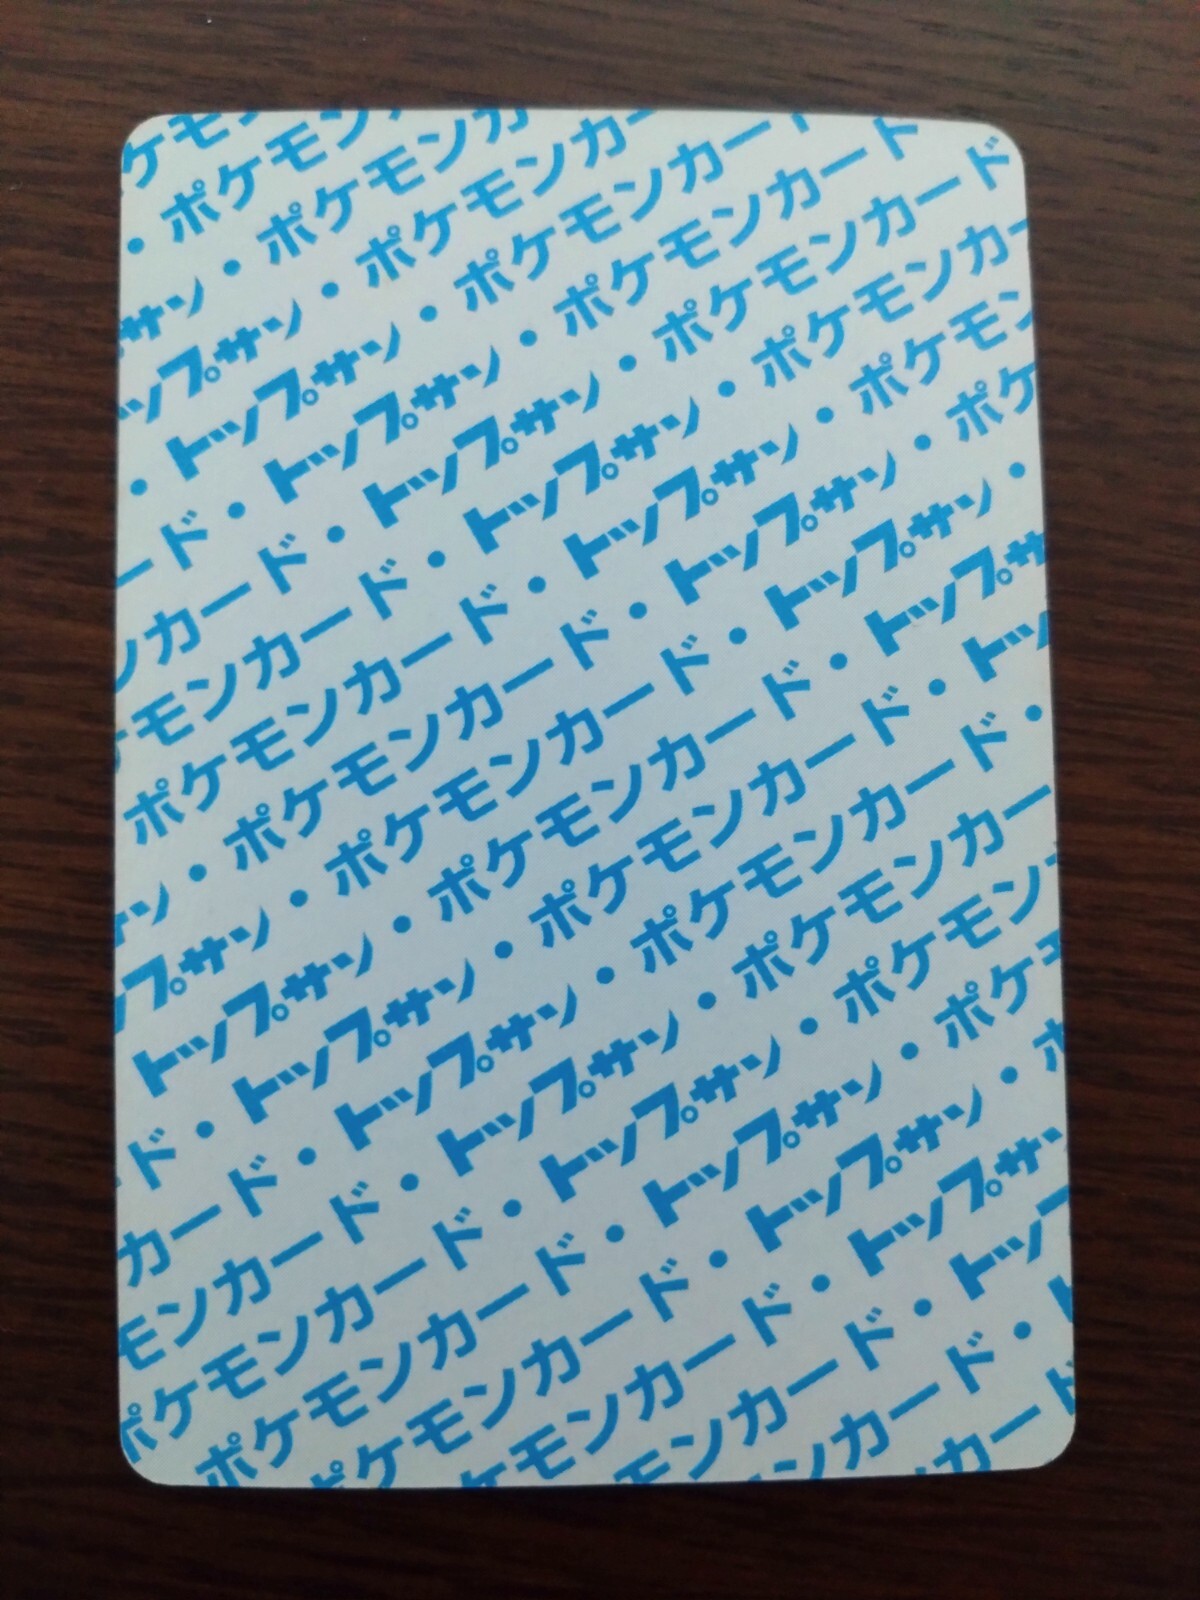 ケモ
・ポケモン
サン・ポケモンカ
ップサン・ポケモンカ
・トップサン・ポケモンカー
ード・トップサン・ポケモンカード
ンカード・トップサン・ポケモンカード
ケモンカード・トップサン・ポケモンカー
ポケモンカード・トップサン・ポケモン
・ポケモンカード・トップサン・ポケ
サン・ポケモンカード・トップサン・
ップサン・ポケモンカード・トップサ
トップサン・ポケモンカード・トッ
ド・トップサン・ポケモンカード・
カード・トップサン・ポケモンカー
モンカード・トップサン・ポケモン
ポケモンカード・トップサン・ポケ
ポケモンカード・トップサン・ポ
ポケモンカード・トップサ
ケモンカード・トッ
モンカード・
ンカード・
カー